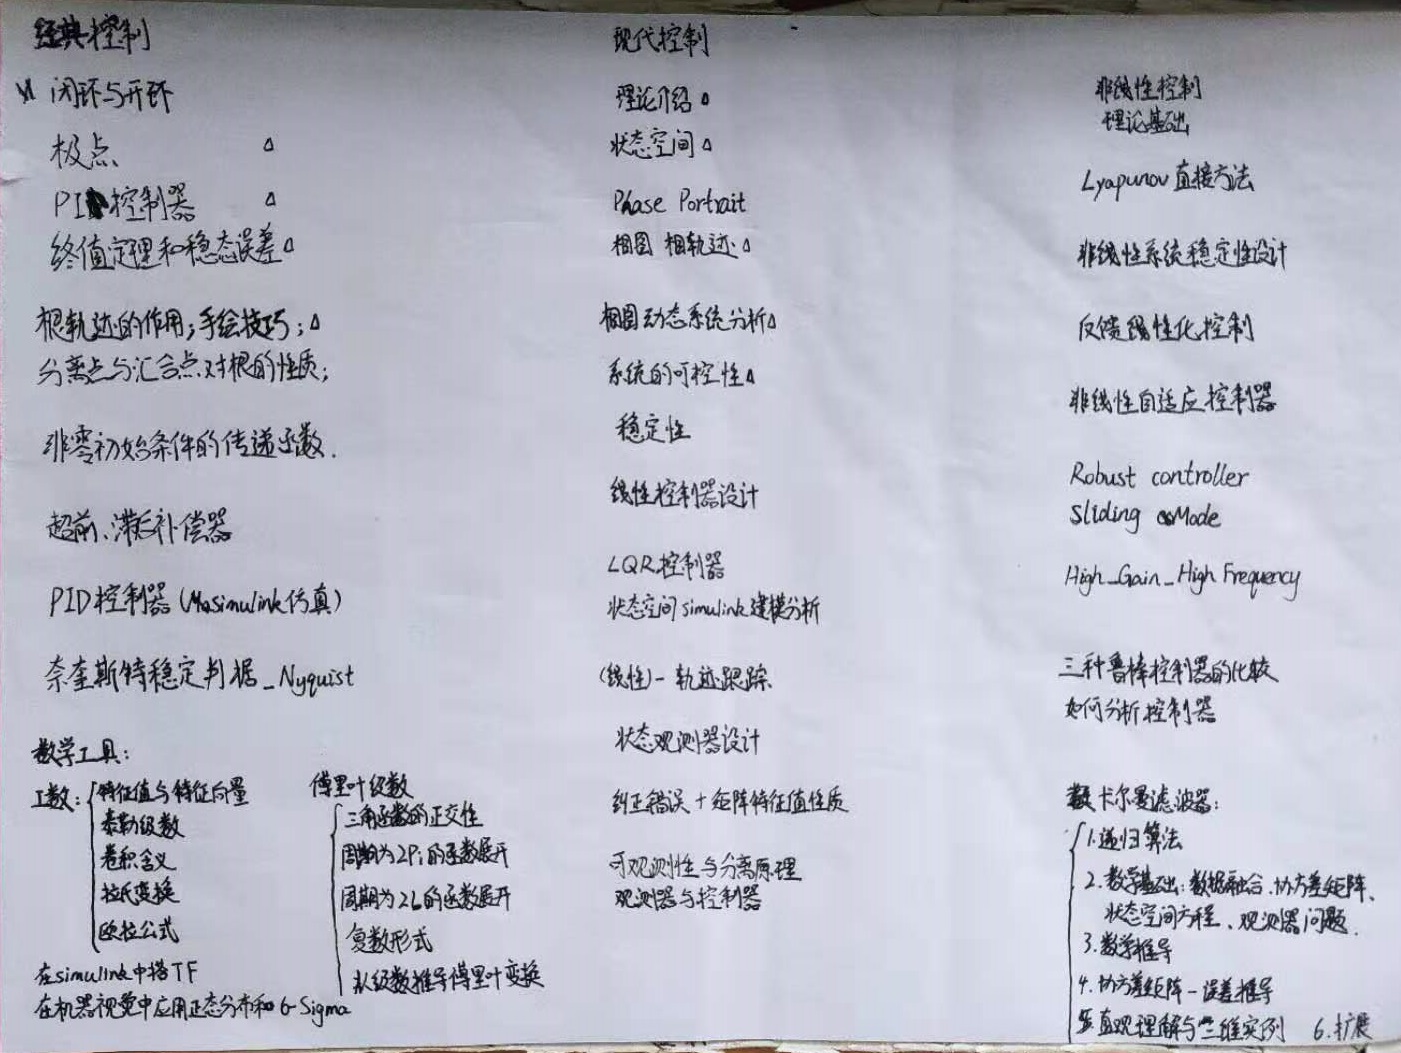 经典控制
闭环与开环
极点 Δ
PI控制器 Δ
终值定理和稳态误差Δ
根轨迹的作用;手绘技巧;Δ
分离点与汇合点对根的性质;
非零初始条件的传递函数.
超前、滞后补偿器
PID控制器(Simulink仿真)
奈奎斯特稳定判据_Nyquist
数学工具:
工数:
特征值与特征向量
泰勒级数
卷积含义
拉氏变换
欧拉公式
傅里叶级数
三角函数的正交性
周期为2Pi的函数展开
周期为2L的函数展开
复数形式
从级数推导傅里叶变换
在simulink中搭TF
在机器视觉中应用正态分布和6-Sigma
现代控制
理论介绍Δ
状态空间Δ
Phase Portrait
相图 相轨迹Δ
相图动态系统分析Δ
系统的可控性Δ
稳定性
线性控制器设计
LQR控制器
状态空间simulink建模分析
(线性)-轨迹跟踪
状态观测器设计
纠正错误+矩阵特征值性质
可观测性与分离原理
观测器与控制器
非线性控制
理论基础
Lyapunov直接方法
非线性系统稳定性设计
反馈线性化控制
非线性自适应控制器
Robust controller
Sliding Mode
High_Gain_High Frequency
三种鲁棒控制器的比较
如何分析控制器
卡尔曼滤波器:
1.递归算法
2.数学基础:数据融合.协方差矩阵、
状态空间方程、观测器问题.
3.数学推导
4.协方差矩阵-误差推导
5.直观理解与二维实例 6.扩展